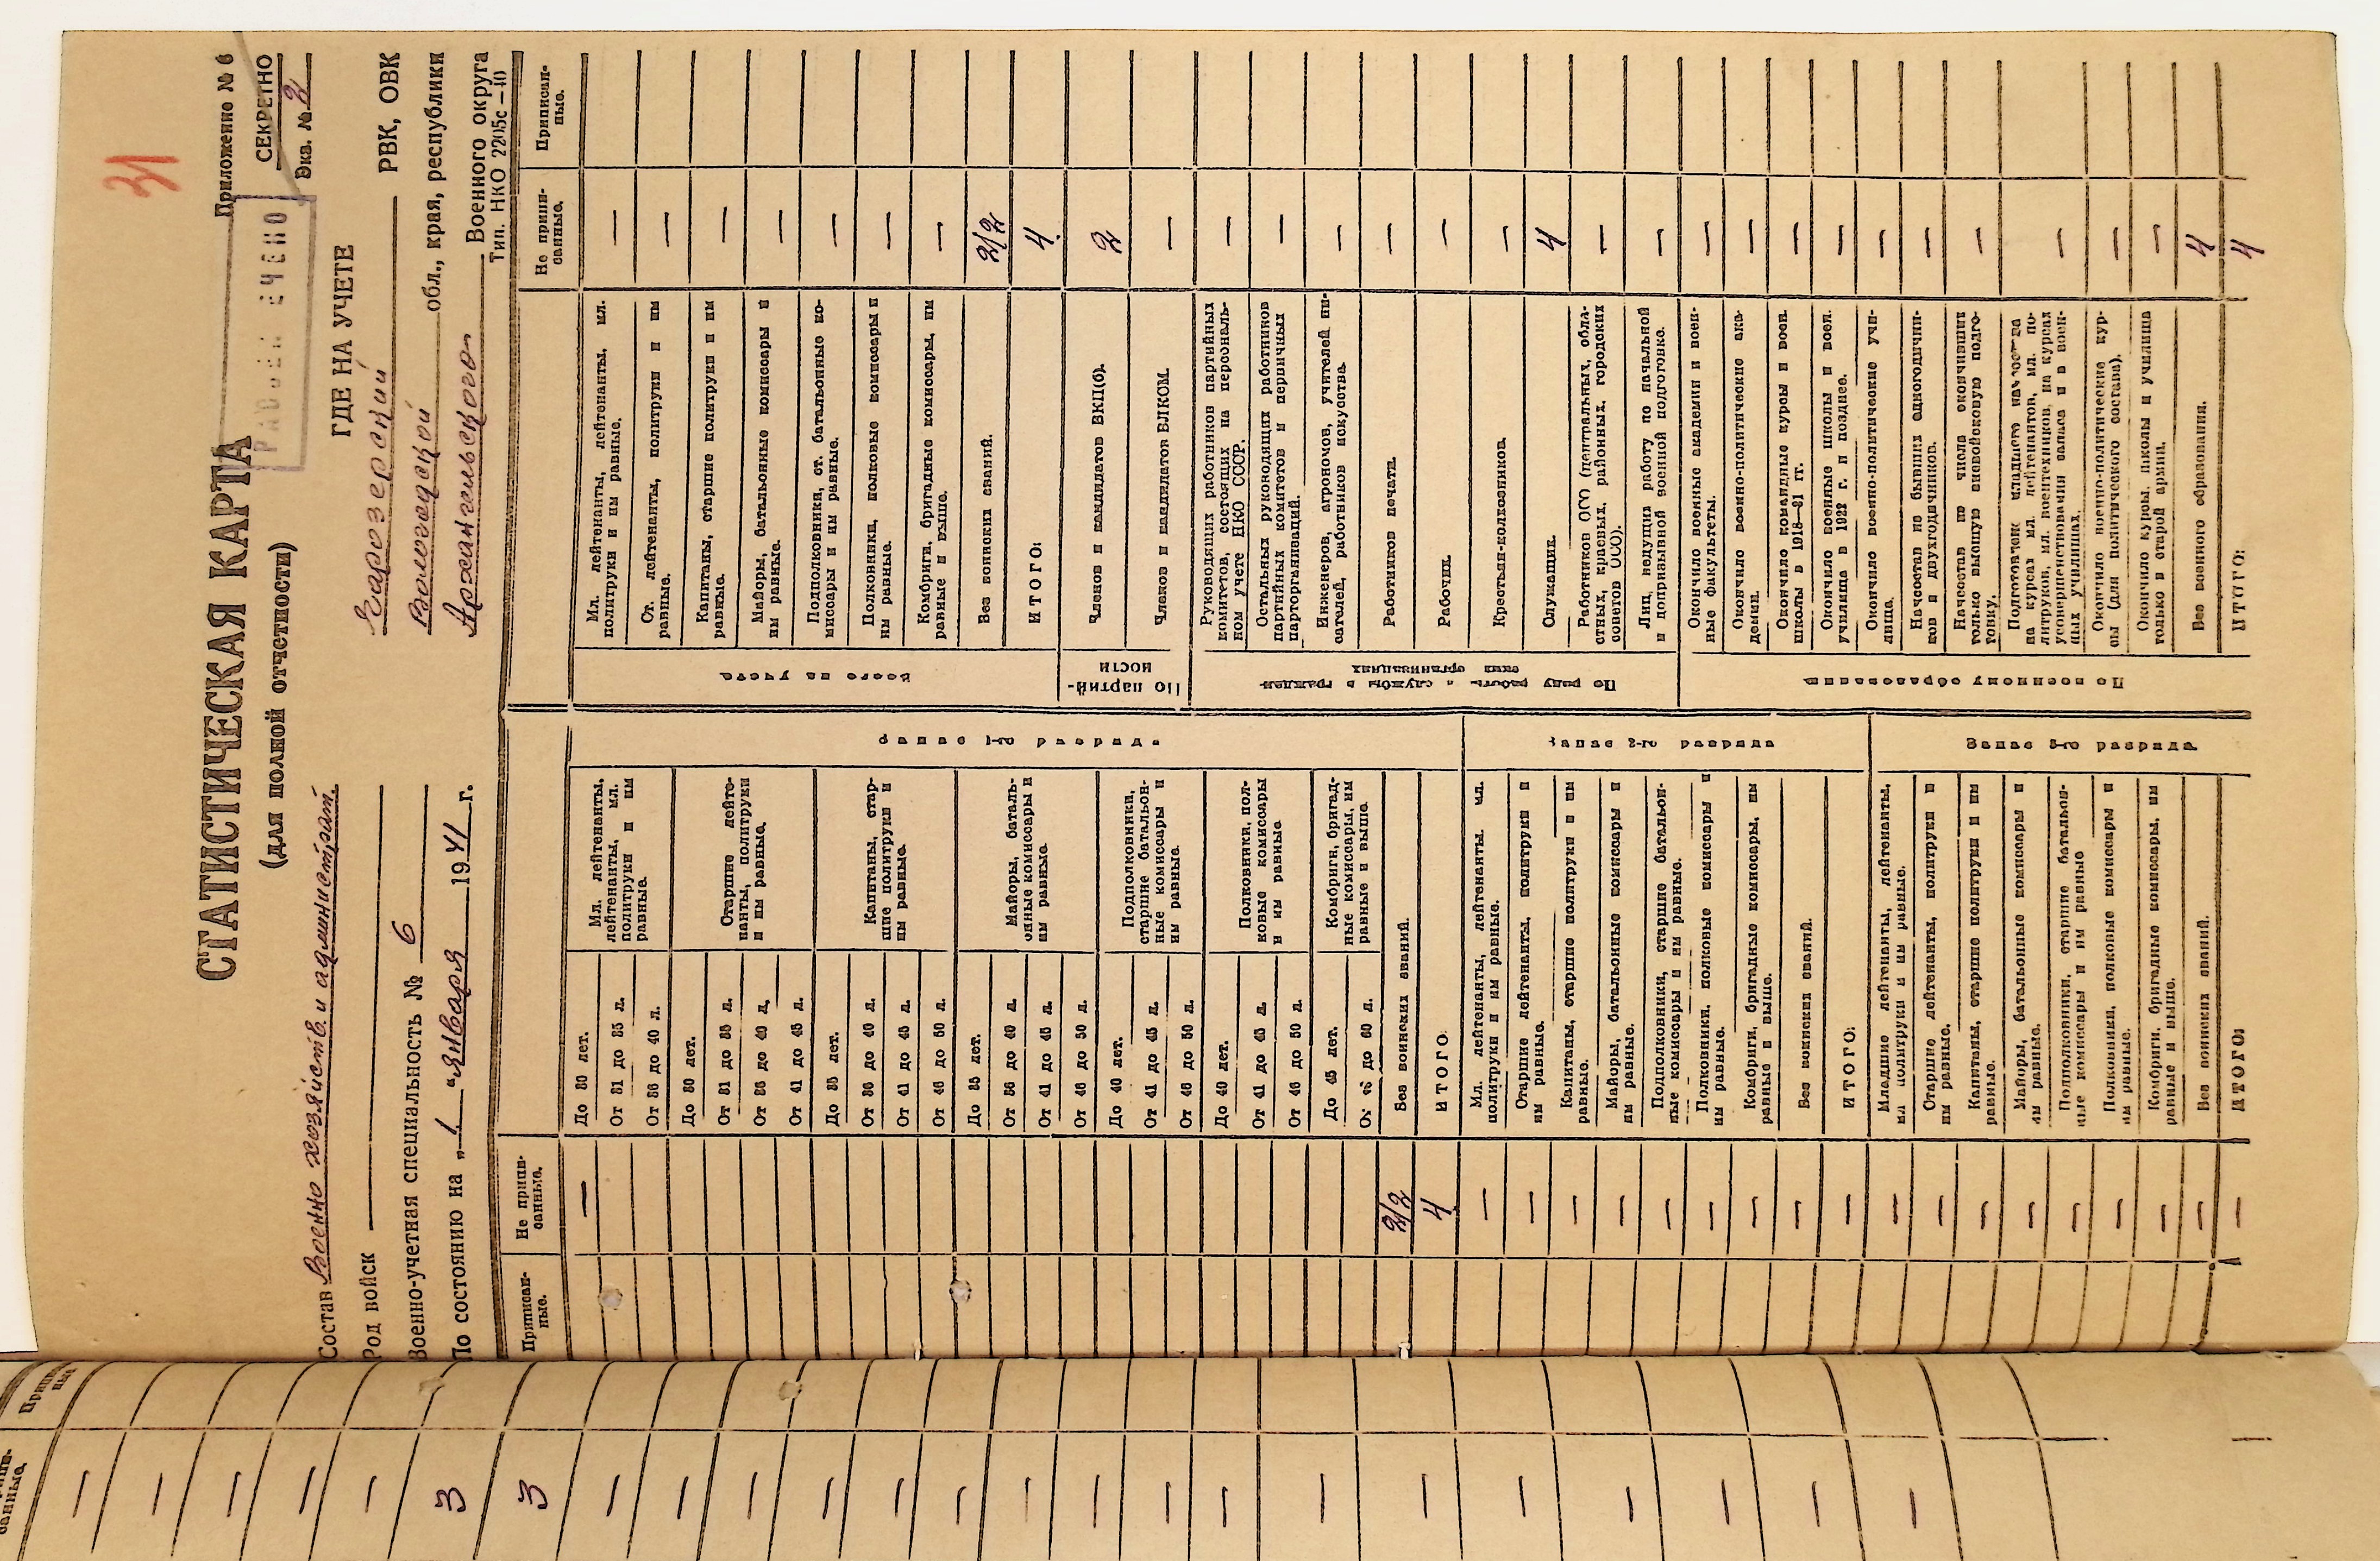 31
Приложение № 6
СЕКРЕТНО
Экз. № 2
РАССЕКРЕЧЕНО
СТАТИСТИЧЕСКАЯ КАРТА
(для полной отчетности)
Состав Военно хозяйств. и администрат.
Род войск
Военно-учетная специальность № 6
По состоянию на „1" января 1941 г.
ГДЕ НА УЧЕТЕ
Чарозерский РВК, ОВК
Вологодской обл., края, республики
Архангельского Военного округа
Тип. НКО 2205с—40
Приписанные.
Не приписанные.
Запас 1-го разряда
До 30 лет. —
От 31 до 35 л.
От 36 до 40 л.
Мл. лейтенанты,
лейтенанты, мл.
политруки и им
равные.
До 30 лет.
От 31 до 35 л.
От 36 до 40 л.
От 41 до 45 л.
Старшие лейте-
нанты, политруки
и им равные.
До 35 лет.
От 36 до 40 л.
От 41 до 45 л.
От 46 до 50 л.
Капитаны, стар-
шие политруки и
им равные.
До 35 лет.
От 36 до 40 л.
От 41 до 45 л.
От 46 до 50 л.
Майоры, баталь-
онные комиссары и
им равные.
До 40 лет.
От 41 до 45 л.
От 46 до 50 л.
Подполковники,
старшие батальон-
ные комиссары и
им равные.
До 40 лет.
От 41 до 45 л.
От 46 до 50 л.
Полковники, пол-
ковые комиссары
и им равные
До 45 лет.
От 46 до 60 л.
Комбриги, бригад-
ные комиссары, им
равные и выше.
Без воинских званий. 2/2
ИТОГО: 4
Запас 2-го разряда
Мл. лейтенанты, лейтенанты, мл.
политруки и им равные. —
Старшие лейтенанты, политруки и
им равные. —
Капитаны, старшие политруки и им
равные. —
Майоры, батальонные комиссары и
им равные. —
Подполковники, старшие батальон-
ные комиссары и им равные. —
Полковники, полковые комиссары и
им равные. —
Комбриги, бригадные комиссары, им
равные и выше. —
Без воинских званий. —
ИТОГО: —
Запас 3-го разряда
Младшие лейтенанты, лейтенанты,
мл. политруки и им равные. —
Старшие лейтенанты, политруки и
им равные. —
Капитаны, старшие политруки и им
равные. —
Майоры, батальонные комиссары и
им равные. —
Подполковники, старшие батальон-
ные комиссары и им равные —
Полковники, полковые комиссары и
им равные. —
Комбриги, бригадные комиссары, им
равные и выше. —
Без воинских званий. —
ИТОГО: —
Не припи-
санные.
Приписан-
ные.
Всего на учете
Мл. лейтенанты, лейтенанты, мл.
политруки и им равные. —
Ст. лейтенанты, политруки и им
равные. —
Капитаны, старшие политруки и им
равные. —
Майоры, батальонные комиссары и
им равные. —
Подполковники, ст. батальонные ко-
миссары и им равные. —
Полковники, полковые комиссары и
им равные. —
Комбриги, бригадные комиссары, им
равные и выше. —
Без воинских званий. 2/2
ИТОГО: 4.
По партий-
ности
Членов и кандидатов ВКП(б). 2
Членов и кандидатов ВЛКСМ. —
По роду работы и службы в граждан-
ских организациях
Руководящих работников партийных
комитетов, состоящих на персональ-
ном учете НКО СССР. —
Остальных руководящих работников
партийных комитетов и первичных
парторганизаций. —
Инженеров, агрономов, учителей пи-
сателей, работников искусства. —
Работников печати. —
Рабочих. —
Крестьян-колхозников. —
Служащих. 4
Работников ОСО (центральных, обла-
стных, краевых, районных, городских
советов ОСО). —
Лиц, ведущих работу по начальной
и допризывной военной подготовке. —
По военному образованию
Окончило военные академии и воен-
ные факультеты. —
Окончило военно-политические ака-
демии. —
Окончило командные курсы и воен.
школы в 1918—21 гг. —
Окончило военные школы и воен.
училища в 1922 г. и позднее. —
Окончило военно-политические учи-
лища. —
Начсостав из бывших одногодични-
ков и двухгодичников. —
Начсостав из числа окончивших
только высшую вневойсковую подго-
товку. —
Подготовлено младшего начсостава
на курсах мл. лейтенантов, мл. по-
литруков, мл. воентехников, на курсах
усовершенствования запаса и в воен-
ных училищах. —
Окончило военно-политические кур-
сы (для политического состава). —
Окончило курсы, школы и училища
только в старой армии. —
Без военного образования. 4
ИТОГО: 4
3
3